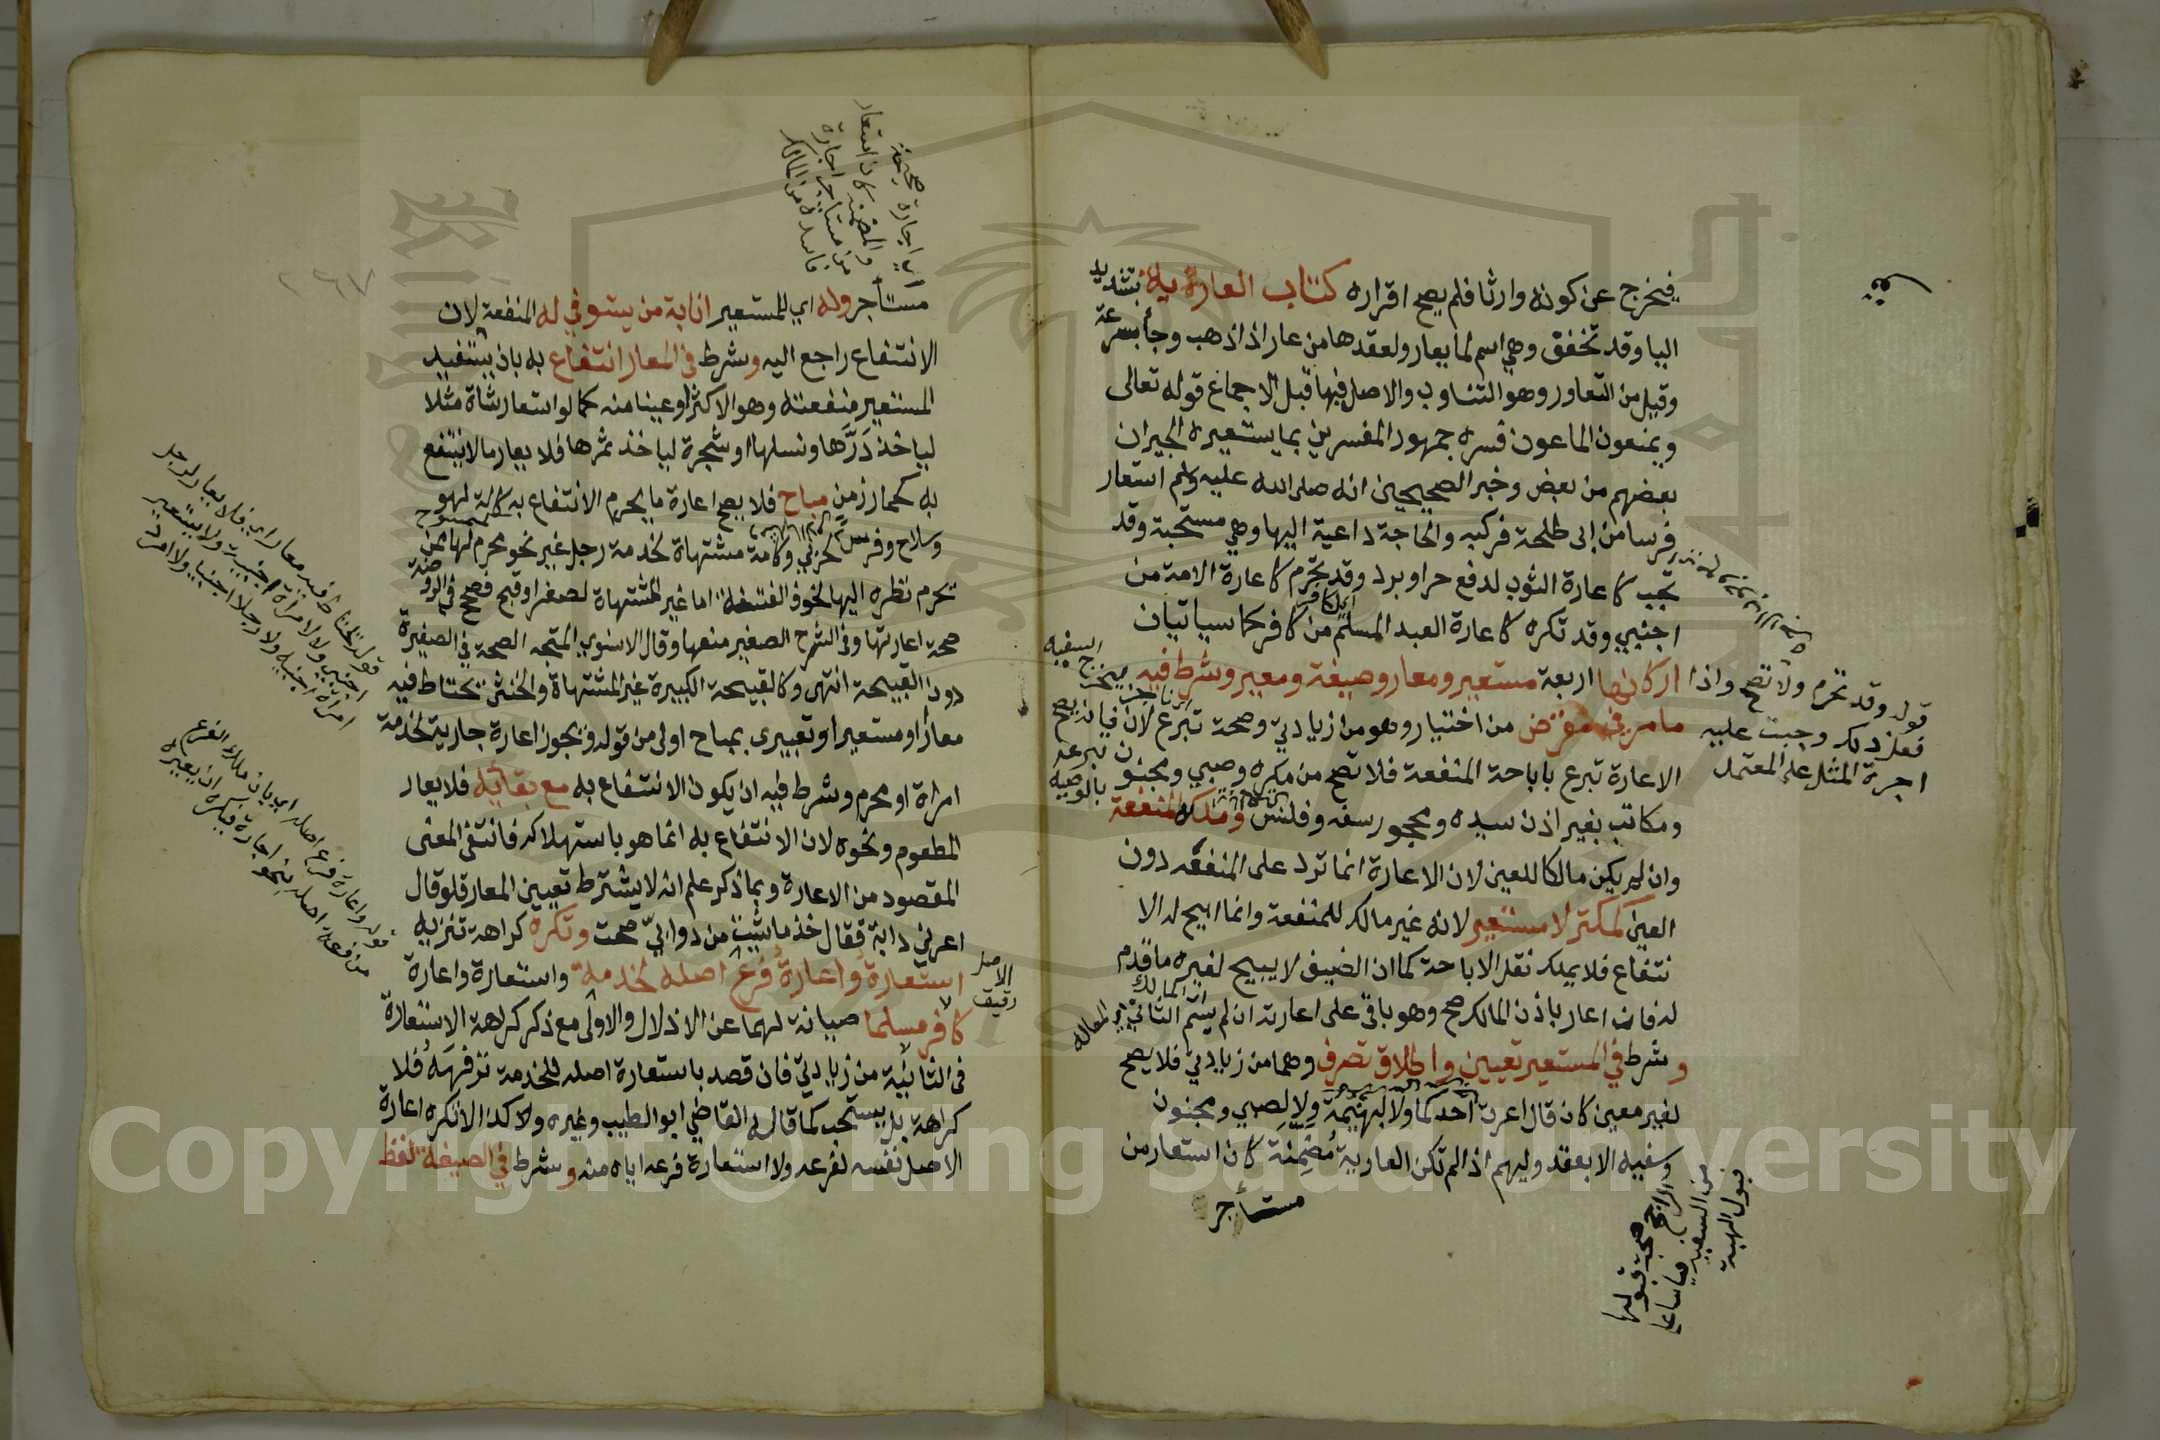 فيخرج عن كونه وارثا فلم يصح اقراره كتاب العارية بتشديد
اليا وقد تخفف وهي اسم لما يعار ولعقدها من عار اذا ذهب وجا بسرعة
وقيل من التعاور وهو التناوب والاصل فيها قبل الاجماع قوله تعالى
ويمنعون الماعون فسره جمهور المفسرين بما يستعيره الجيران
بعضهم من بعض وخبر الصحيحين انه صلى الله عليه وسلم استعار
فرسا من ابى طلحة فركبه والحاجة داعية اليها وهي مستحبة وقد
تجب كاعارة الثوب لدفع حر او برد وقد تحرم كاعارة الامة من
اجنبي وقد تكره كاعارة العبد المسلم من كافر كما سياتيان
اركانها اربعة مستعير ومعار وصيغة ومعير وشرط فيه
ما مر في مقرض من اختيار وهو من زيادتي وصحة تبرع لان
الاعارة تبرع باباحة المنفعة فلا تصح من مكره وصبي ومجنون
ومكاتب بغير اذن سيده ومحجور سفه وفلس وملكه المنفعة
وان لم يكن مالكا للعين لان الاعارة انما ترد على المنفعة دون
العين كمكتر لا مستعير لانه غير مالك للمنفعة وانما ابيح له الا
نتفاع فلا يملك نقل الاباحة كما ان الضيف لا يبيح لغيره ما قدم
له فان اعار باذن المالك صح وهو باق على اعارته ان لم يسم الثاني
وشرط في المستعير تعيين واطلاق تصرف وهما من زيادتي فلا يصح
لغير معين كان قال اعرت احدكما ولا لبهيمة ولا لصبي ومجنون
وسفيه الا بعقد وليهم اذا لم تكن العارية مضمنة كان استعار من
مستاجر
قوله وقد تحرم ولا تصح واذا
فعل ذلك وجبت عليه
اجرة المثل على المعتمد
والراجح صحة قبولها
من السفيه قياسا على
قبول الهبة
اي اجارة صحيحة
مستأجر وله اي للمستعير انابة من يستوفي له المنفعة لان
الانتفاع راجع اليه وشرط في المعار انتفاع به بان يستفيد
المستعير منفعته وهو الاكثر او عينا منه كما لو استعار شاة مثلا
لياخذ دَرَّها ونسلها او شجرة لياخذ ثمرها فلا يعار ما لا ينتفع
به كحمار زمن مباح فلا يصح اعارة ما يحرم الانتفاع به كالة لهو
وسلاح وفرس لحربي وكامة مشتهاة لخدمة رجل غير نحو محرم لها ممن
يحرم نظره اليها لخوف الفتنة اما غير المشتهاة لصغر او قبح فصحح في الروضة
صحة اعارتها وفى الشرح الصغير منعها وقال الاسنوي المتجه الصحة في الصغيرة
دون القبيحة انتهى وكالقبيحة الكبيرة غير المشتهاة والخنثى يحتاط فيه
معارا او مستعيرا وتعبيرى بمباح اولى من قوله ويجوز اعارة جارية لخدمة
امراة او محرم وشرط فيه ان يكون الانتفاع به مع بقائه فلا يعار
المطعوم ونحوه لان الانتفاع به انما هو باستهلاكه فانتفى المعنى
المقصود من الاعارة وبما ذكر علم انه لا يشترط تعيين المعار فلو قال
اعرني دابة فقال خذ ما شئت من دوابي صحت وتكره كراهة تنزيه
استعارة واعارة فرع اصله لخدمة واستعارة واعارة
كافر مسلما صيانة لهما عن الاذلال والاولى مع ذكر كراهة الاستعارة
فى الثانية من زيادتي فان قصد باستعارة اصله للخدمة ترفهه فلا
كراهة بل يستحب كما قاله القاضي ابو الطيب وغيره ولا كذا لا تكره اعارة
الاصل نفسه لفرعه ولا استعارة فرعه اياه منه وشرط في الصيغة لفظ
الاصل
رقيق